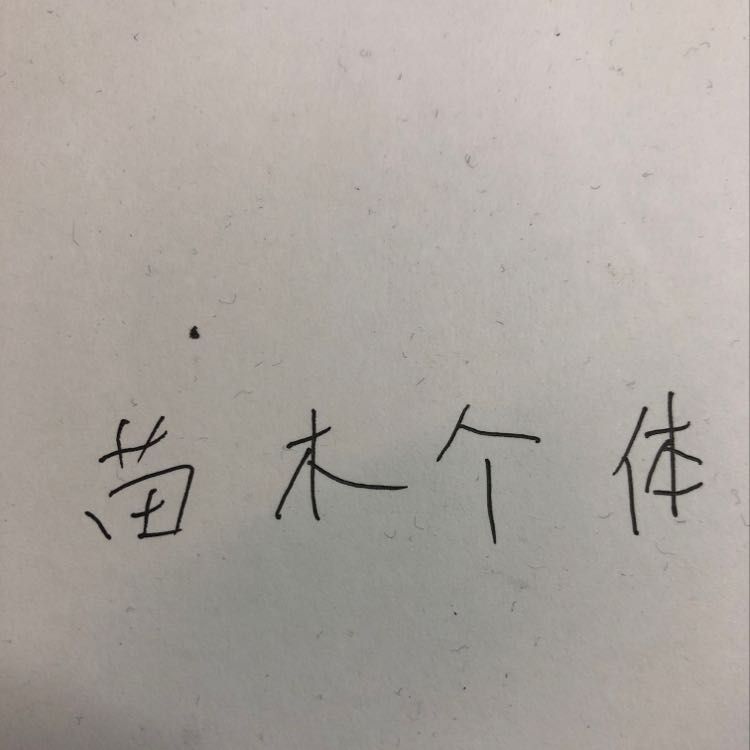 苗木个体